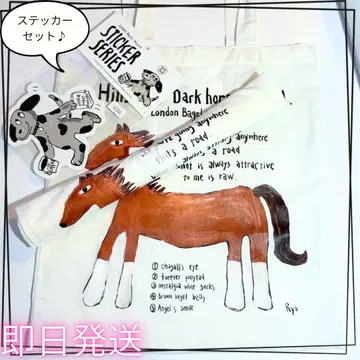 ステッカー
セット♪
STICKER
SERIES
Dark horse
London Bagel
going anywhere
anywhere
this a road.
a road
what is always attractive
to me is raw.
① chagall's eye
② forever ponytail
③ nostalgia white socks
④ Brown bagel belly
⑤ Angel's smile
Ryo
即日発送